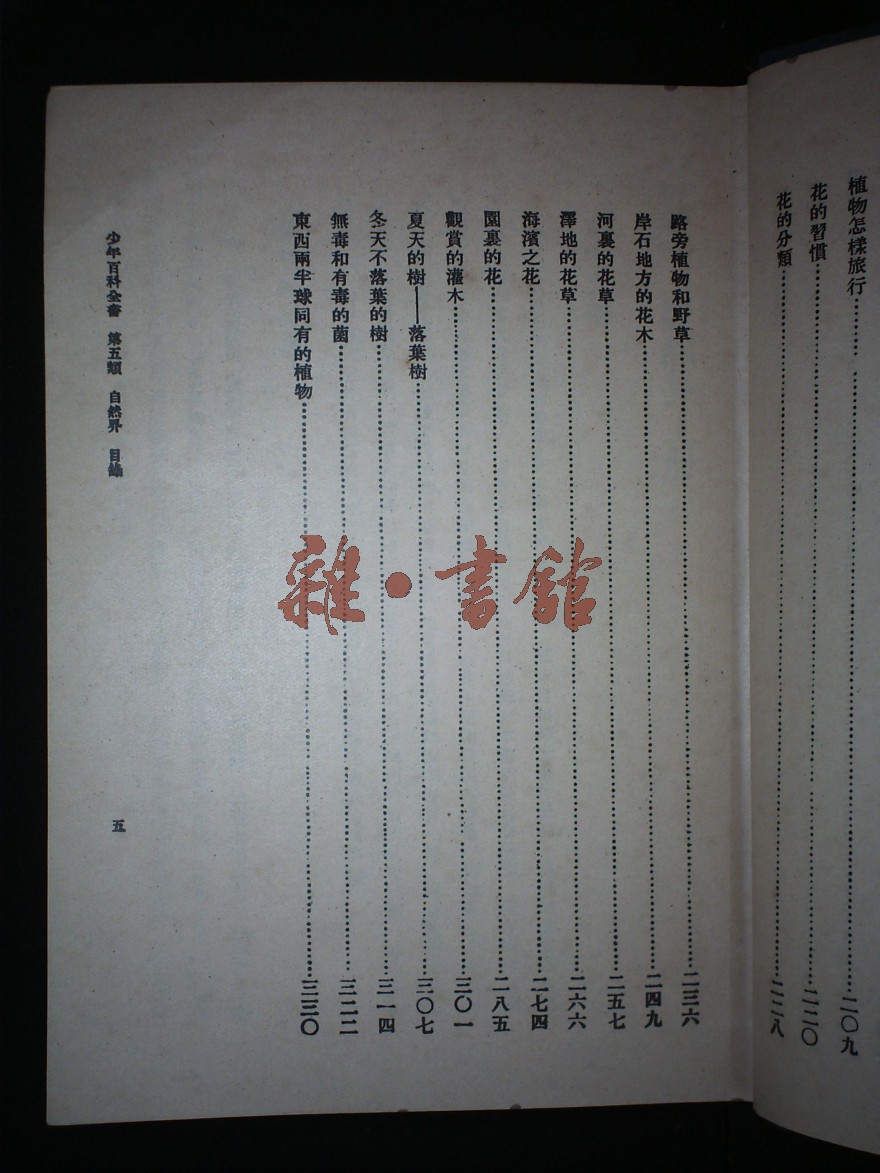 植物怎樣旅行……………………二〇九
花的習慣……………………二二〇
花的分類……………………二二八
路旁植物和野草……………………二三六
岸石地方的花木……………………二四九
河裏的花草……………………二五七
澤地的花草……………………二六六
海濱之花……………………二七四
園裏的花……………………二八五
觀賞的灌木……………………三〇一
夏天的樹——落葉樹……………………三〇七
冬天不落葉的樹……………………三一四
無毒和有毒的菌……………………三二二
東西兩半球同有的植物……………………三三〇
少年百科全書 第五類 自然界 目錄 五
雜·書館